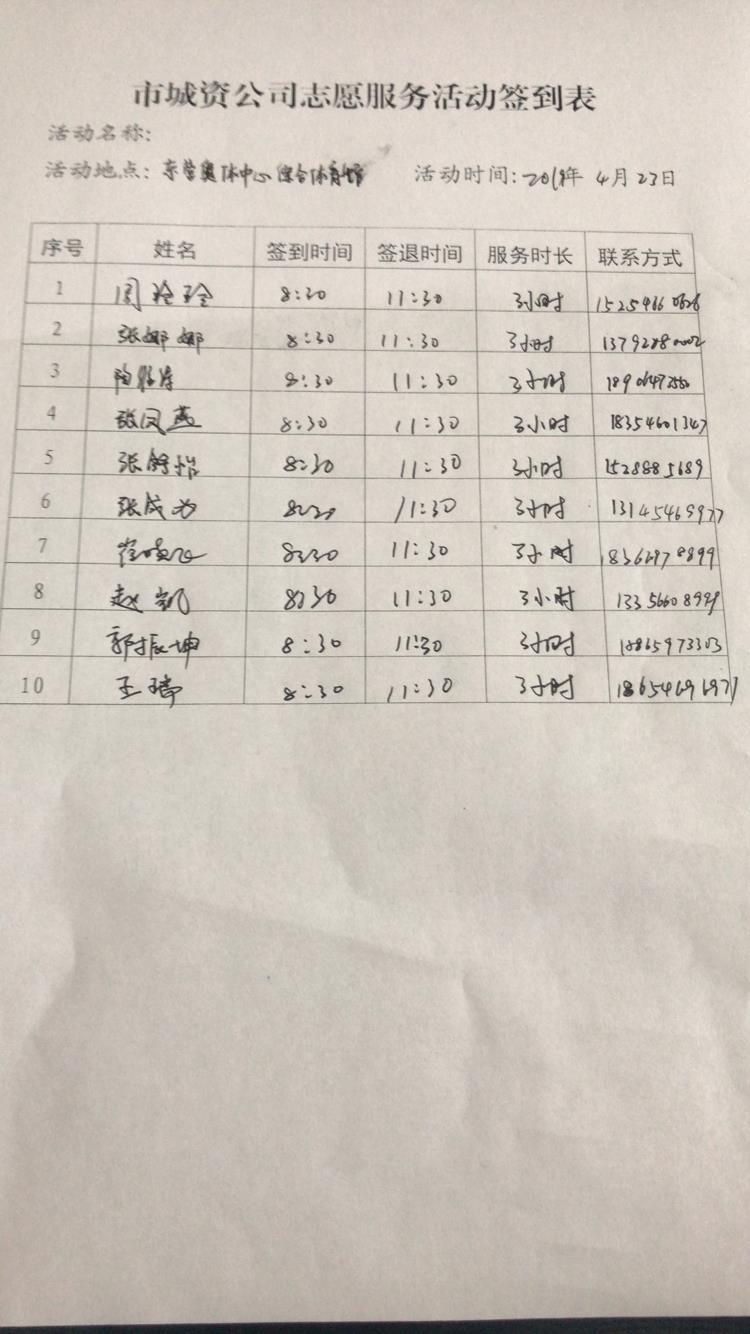 市城资公司志愿服务活动签到表
活动名称:
活动地点: 东营奥体中心综合体育馆 活动时间: 年 4月23日
序号 姓名 签到时间 签退时间 服务时长 联系方式
1 周玲玲 8:30 11:30 3小时
2 张娜娜 8:30 11:30 3小时
3 8:30 11:30 3小时
4 张凤燕 8:30 11:30 3小时 18354601347
5 张舒怡 8:30 11:30 3小时 1528885689
6 张成为 8:30 11:30 3小时 13145469977
7 8:30 11:30 3小时
8 赵凯 8:30 11:30 3小时
9 郭振坤 8:30 11:30 3小时 18865973303
10 王瑞 8:30 11:30 3小时 18654696971